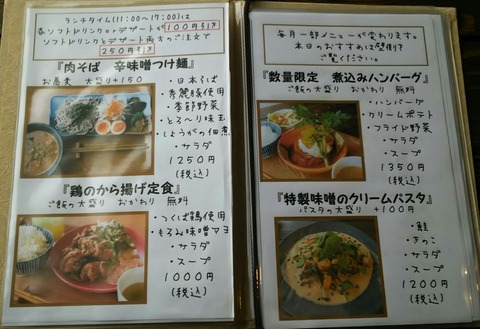 ランチタイム(11:00〜17:00)は
各ソフトドリンクorデザートが100円引き
ソフトドリンクとデザート両方のご注文で
250円引き
『肉そば 辛味噌つけ麺』
お蕎麦 大盛り+150
・日本そば
・秀麗豚使用
・季節野菜
・とろ〜り味玉
・しょうがの佃煮
・サラダ
1250円
(税込)
『鶏のから揚げ定食』
ご飯の大盛り おかわり 無料
・つくば鶏使用
・もろみ味噌マヨ
・サラダ
・スープ
1000円
(税込)
毎月一部メニューが変わります。
本日のおすすめは壁側?
ご覧ください。
『数量限定 煮込みハンバーグ』
ご飯の大盛り おかわり 無料
・ハンバーグ
・クリームポテト
・フライド野菜
・サラダ
・スープ
1350円
(税込)
『特製味噌のクリームパスタ』
パスタの大盛り +100円
・鮭
・きのこ
・サラダ
・スープ
1200円
(税込)